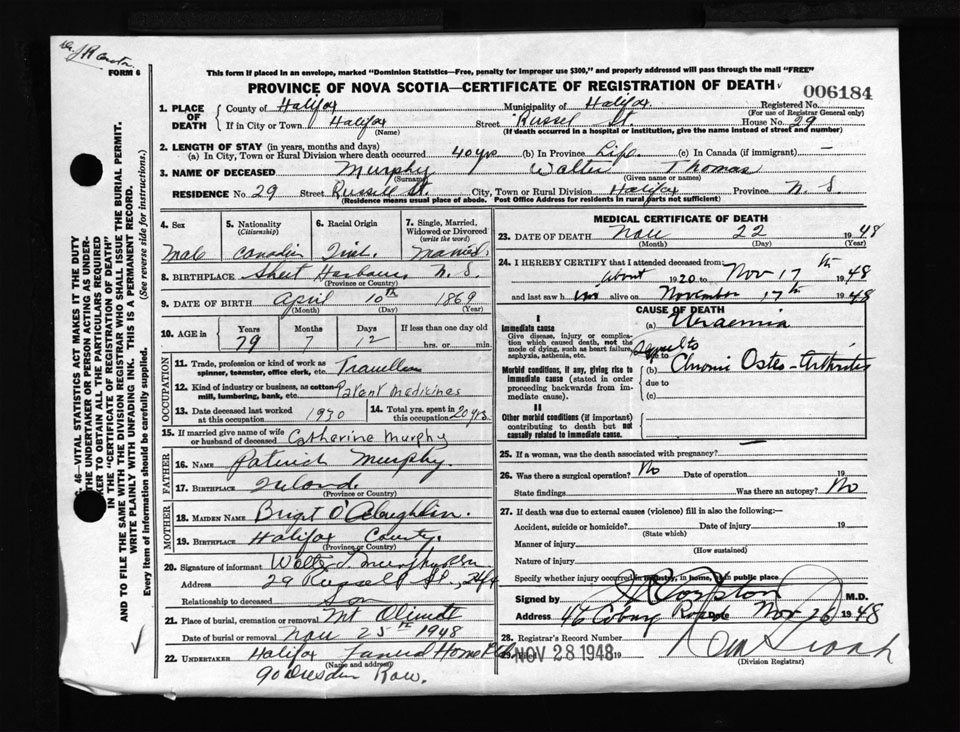 FORM 6
This form if placed in an envelope, marked "Dominion Statistics—Free, penalty for improper use $300," and properly addressed will pass through the mail "FREE"
PROVINCE OF NOVA SCOTIA—CERTIFICATE OF REGISTRATION OF DEATH
006184
1. PLACE OF DEATH County of Halifax Municipality of Halifax Registered No.
(For use of Registrar General only)
If in City or Town Halifax Street Russel St. House No. 29
(Name) (If death occurred in a hospital or institution, give the name instead of street and number)
2. LENGTH OF STAY (in years, months and days)
(a) In City, Town or Rural Division where death occurred 40 yrs (b) In Province Life (c) In Canada (if immigrant) —
3. NAME OF DECEASED Murphy Walter Thomas
(Surname) (Given name or names)
RESIDENCE No. 29 Street Russell St. City, Town or Rural Division Halifax Province N. S.
(Residence means usual place of abode. Post Office Address for residents in rural parts not sufficient)
4. Sex 5. Nationality (Citizenship) 6. Racial Origin 7. Single, Married, Widowed or Divorced (write the word)
Male Canadian Irish Married
8. BIRTHPLACE Sheet Harbour, N. S.
(Province or Country)
9. DATE OF BIRTH April 10th 1869
(Month) (Day) (Year)
10. AGE in Years Months Days If less than one day old
79 7 12 hrs. or min.
OCCUPATION
11. Trade, profession or kind of work as spinner, teamster, office clerk, etc. Traveller
12. Kind of industry or business, as cotton-mill, lumbering, bank, etc. Patent medicines
13. Date deceased last worked at this occupation 1930 14. Total yrs. spent in this occupation 20 yrs.
15. If married give name of wife or husband of deceased Catherine Murphy
FATHER
16. NAME Patrick Murphy.
17. BIRTHPLACE Ireland.
(Province or Country)
MOTHER
18. MAIDEN NAME Brigt O'Claughlin.
19. BIRTHPLACE Halifax County.
(Province or Country)
20. Signature of informant Walter J. Murphy
Address 29 Russell St.,
Relationship to deceased Son
21. Place of burial, cremation or removal Mt Olivet
Date of burial or removal Nov 25th 1948
22. UNDERTAKER Halifax Funeral Home
(Name and address)
90 Dresden Row.
MEDICAL CERTIFICATE OF DEATH
23. DATE OF DEATH Nov 22 1948
(Month) (Day) (Year)
24. I HEREBY CERTIFY that I attended deceased from:
about 1920 to Nov 17th 1948
and last saw him alive on November 17th 1948
CAUSE OF DEATH
I
Immediate cause (a) Uraemia
Give disease, injury or complication which caused death, not the mode of dying, such as heart failure, asphyxia, asthenia, etc.
Morbid conditions, if any, giving rise to immediate cause (stated in order proceeding backwards from immediate cause). (b) Chronic Osteo-Arthritis
due to
(c)
II
Other morbid conditions (if important) contributing to death but not causally related to immediate cause.
25. If a woman, was the death associated with pregnancy? —
26. Was there a surgical operation? No Date of operation 19
State findings Was there an autopsy? No
27. If death was due to external causes (violence) fill in also the following:—
Accident, suicide or homicide? Date of injury 19
(State which)
Manner of injury
(How sustained)
Nature of injury
Specify whether injury occurred in industry, in home, or in public place
Signed by M.D.
Address 46 Coburg Road Date Nov 26 1948
28. Registrar's Record Number
29. Filed NOV 28 1948 19
(Division Registrar)
46—VITAL STATISTICS ACT MAKES IT THE DUTY
THE UNDERTAKER OR PERSON ACTING AS UNDER-
KER TO OBTAIN ALL THE PARTICULARS REQUIRED
IN THE "CERTIFICATE OF REGISTRATION OF DEATH"
AND TO FILE THE SAME WITH THE DIVISION REGISTRAR WHO SHALL ISSUE THE BURIAL PERMIT.
WRITE PLAINLY WITH UNFADING INK. THIS IS A PERMANENT RECORD.
Every item of information should be carefully supplied. (See reverse side for instructions.)